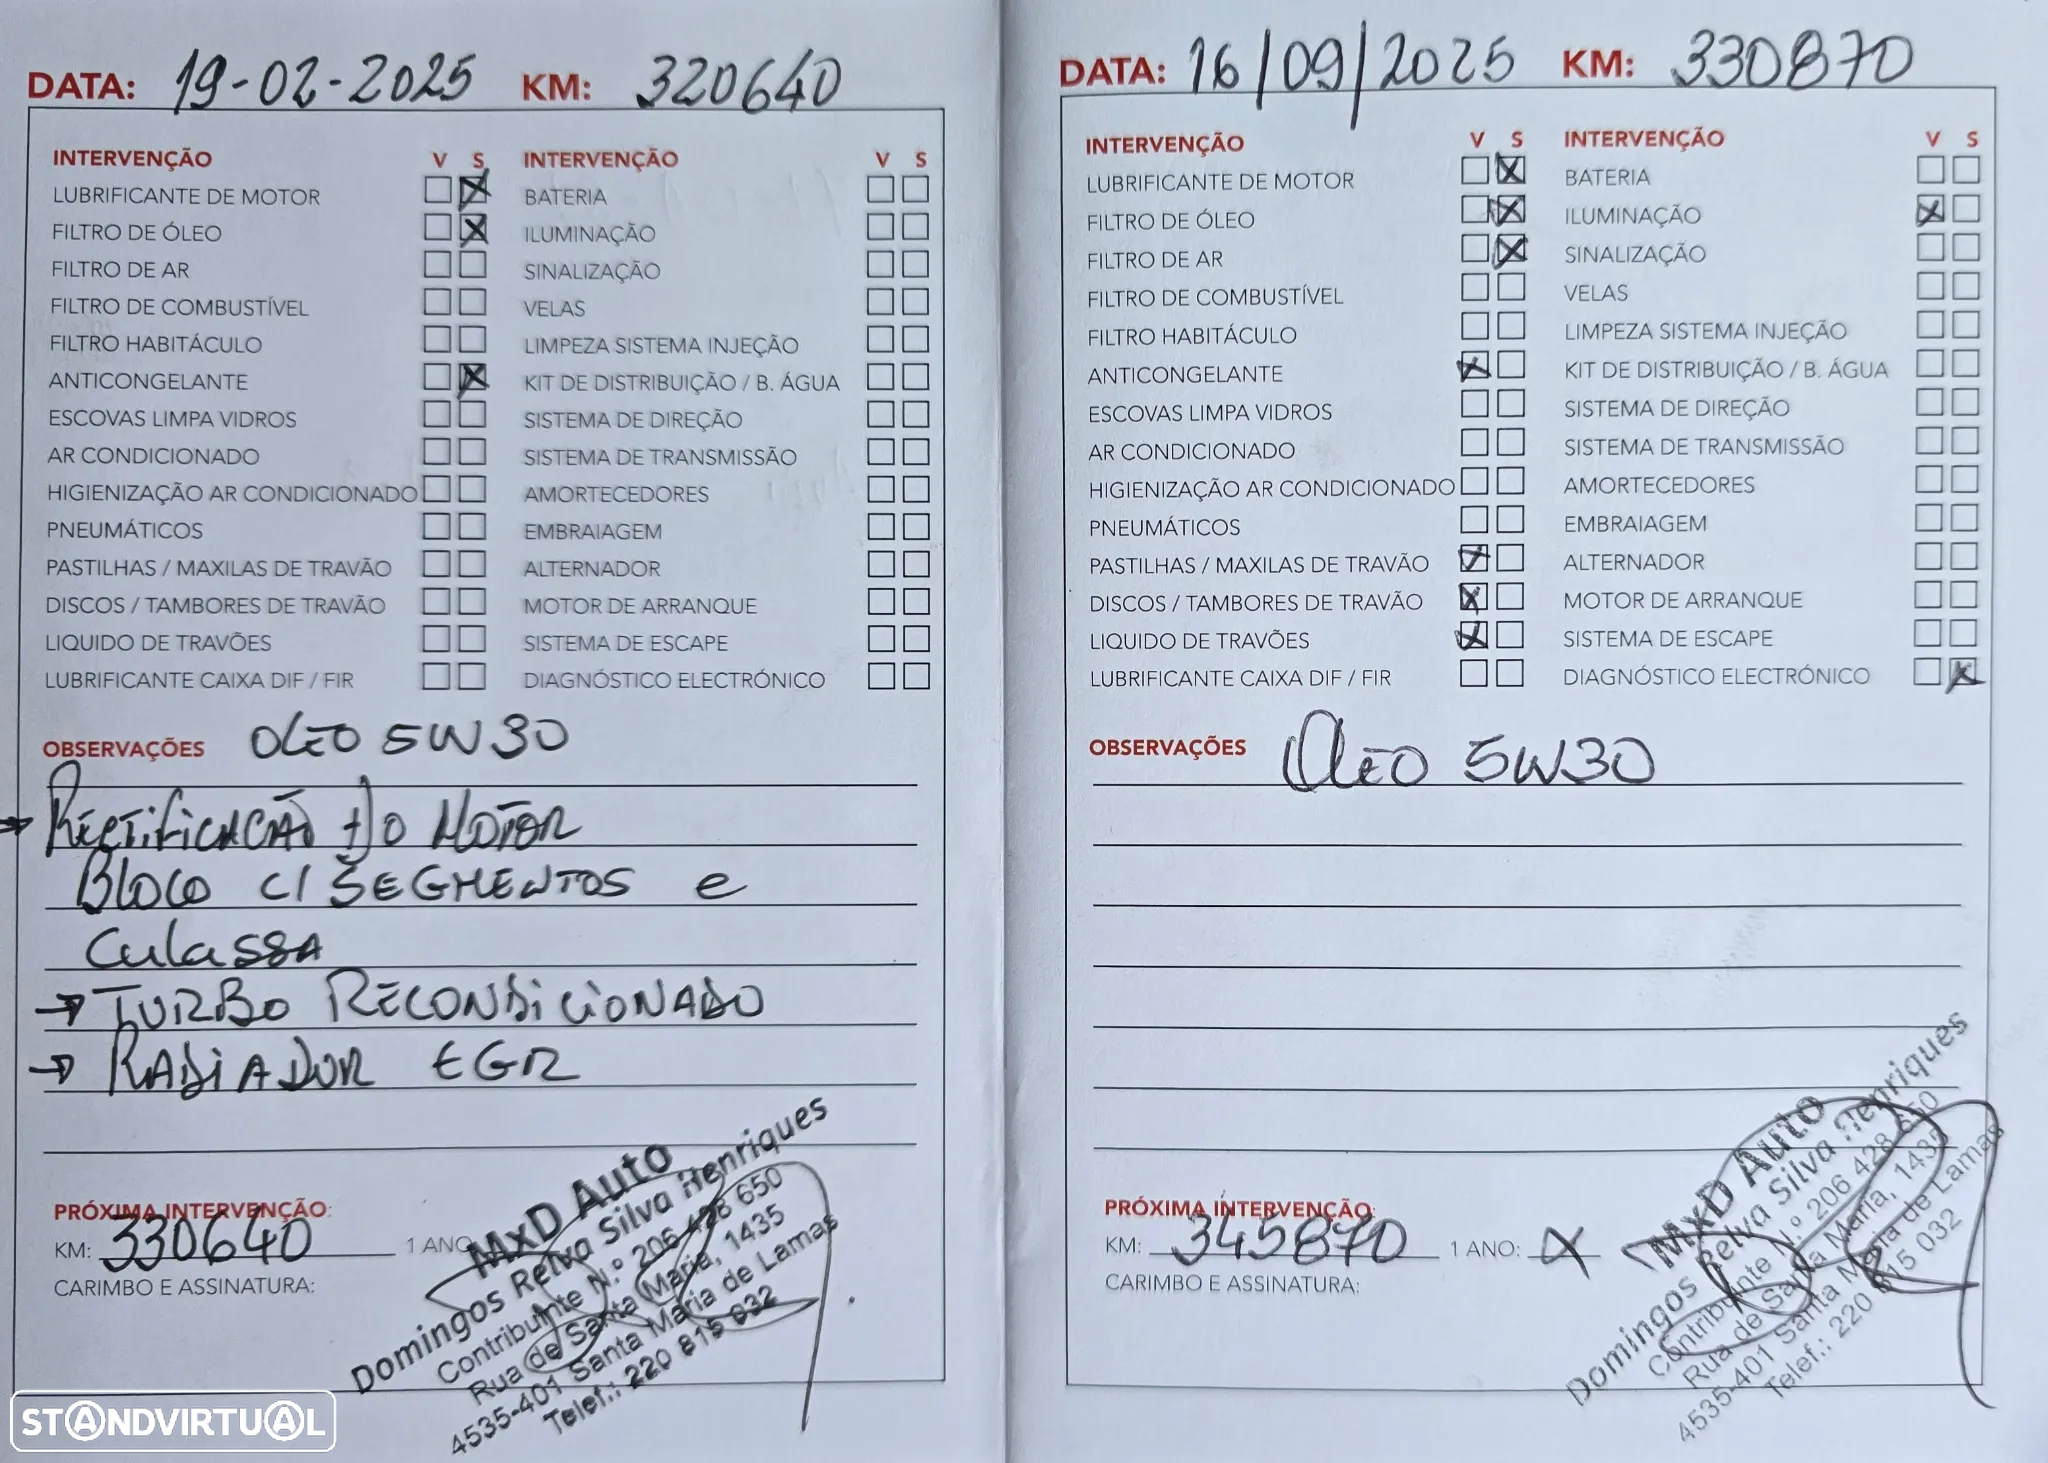 DATA: 19-02-2025 KM: 320640
INTERVENÇÃO V S INTERVENÇÃO V S
LUBRIFICANTE DE MOTOR BATERIA
FILTRO DE ÓLEO ILUMINAÇÃO
FILTRO DE AR SINALIZAÇÃO
FILTRO DE COMBUSTÍVEL VELAS
FILTRO HABITÁCULO LIMPEZA SISTEMA INJEÇÃO
ANTICONGELANTE KIT DE DISTRIBUIÇÃO / B. ÁGUA
ESCOVAS LIMPA VIDROS SISTEMA DE DIREÇÃO
AR CONDICIONADO SISTEMA DE TRANSMISSÃO
HIGIENIZAÇÃO AR CONDICIONADO AMORTECEDORES
PNEUMÁTICOS EMBRAIAGEM
PASTILHAS / MAXILAS DE TRAVÃO ALTERNADOR
DISCOS / TAMBORES DE TRAVÃO MOTOR DE ARRANQUE
LIQUIDO DE TRAVÕES SISTEMA DE ESCAPE
LUBRIFICANTE CAIXA DIF / FIR DIAGNÓSTICO ELECTRÓNICO
OBSERVAÇÕES OLEO 5W30
→ RECTIFICAÇÃO DO MOTOR
BLOCO C/ SEGMENTOS e
Culassa
→ TURBO RECONDICIONADO
→ RADIADOR EGR
PRÓXIMA INTERVENÇÃO:
KM: 330640 1 ANO
CARIMBO E ASSINATURA:
MxD Auto
Domingos Relva Silva Henriques
Contribuinte N.º 206 428 650
Rua de Santa Maria, 1435
4535-401 Santa Maria de Lamas
Telef.: 220 815 032
DATA: 16/09/2025 KM: 330870
INTERVENÇÃO V S INTERVENÇÃO V S
LUBRIFICANTE DE MOTOR BATERIA
FILTRO DE ÓLEO ILUMINAÇÃO
FILTRO DE AR SINALIZAÇÃO
FILTRO DE COMBUSTÍVEL VELAS
FILTRO HABITÁCULO LIMPEZA SISTEMA INJEÇÃO
ANTICONGELANTE KIT DE DISTRIBUIÇÃO / B. ÁGUA
ESCOVAS LIMPA VIDROS SISTEMA DE DIREÇÃO
AR CONDICIONADO SISTEMA DE TRANSMISSÃO
HIGIENIZAÇÃO AR CONDICIONADO AMORTECEDORES
PNEUMÁTICOS EMBRAIAGEM
PASTILHAS / MAXILAS DE TRAVÃO ALTERNADOR
DISCOS / TAMBORES DE TRAVÃO MOTOR DE ARRANQUE
LIQUIDO DE TRAVÕES SISTEMA DE ESCAPE
LUBRIFICANTE CAIXA DIF / FIR DIAGNÓSTICO ELECTRÓNICO
OBSERVAÇÕES OLEO 5W30
PRÓXIMA INTERVENÇÃO:
KM: 345870 1 ANO: X
CARIMBO E ASSINATURA:
MxD Auto
Domingos Relva Silva Henriques
Contribuinte N.º 206 428 650
Rua de Santa Maria, 1435
4535-401 Santa Maria de Lamas
Telef.: 220 815 032
STANDVIRTUAL